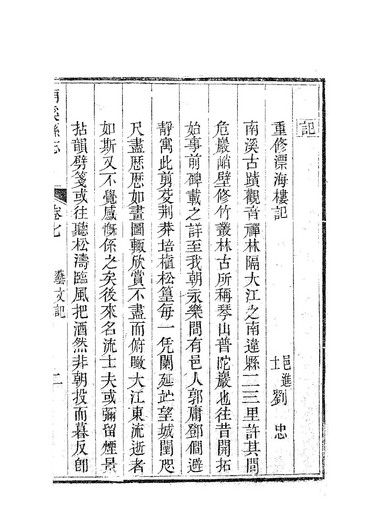 記
重修漂海樓記
邑進士劉忠
南溪古蹟觀音禪林隔大江之南違縣二三里許其間
危巖峭壁修竹叢林古所稱琴山普陀巖也往昔開拓
始事前碑載之詳至我朝永樂間有邑人郭庸鄧僩避
靜寓此剪茇荆莽培植松篁每一凭闌延竚望城闉咫
尺盡厯厯如畫圖輒欣賞不盡而俯瞰大江東流逝者
如斯又不覺感慨係之矣後來名流士夫或彌留煙景
拈韻劈箋或往聽松濤臨風把酒然非朝投而暮反卽
南溪縣志
卷七
藝文記
二